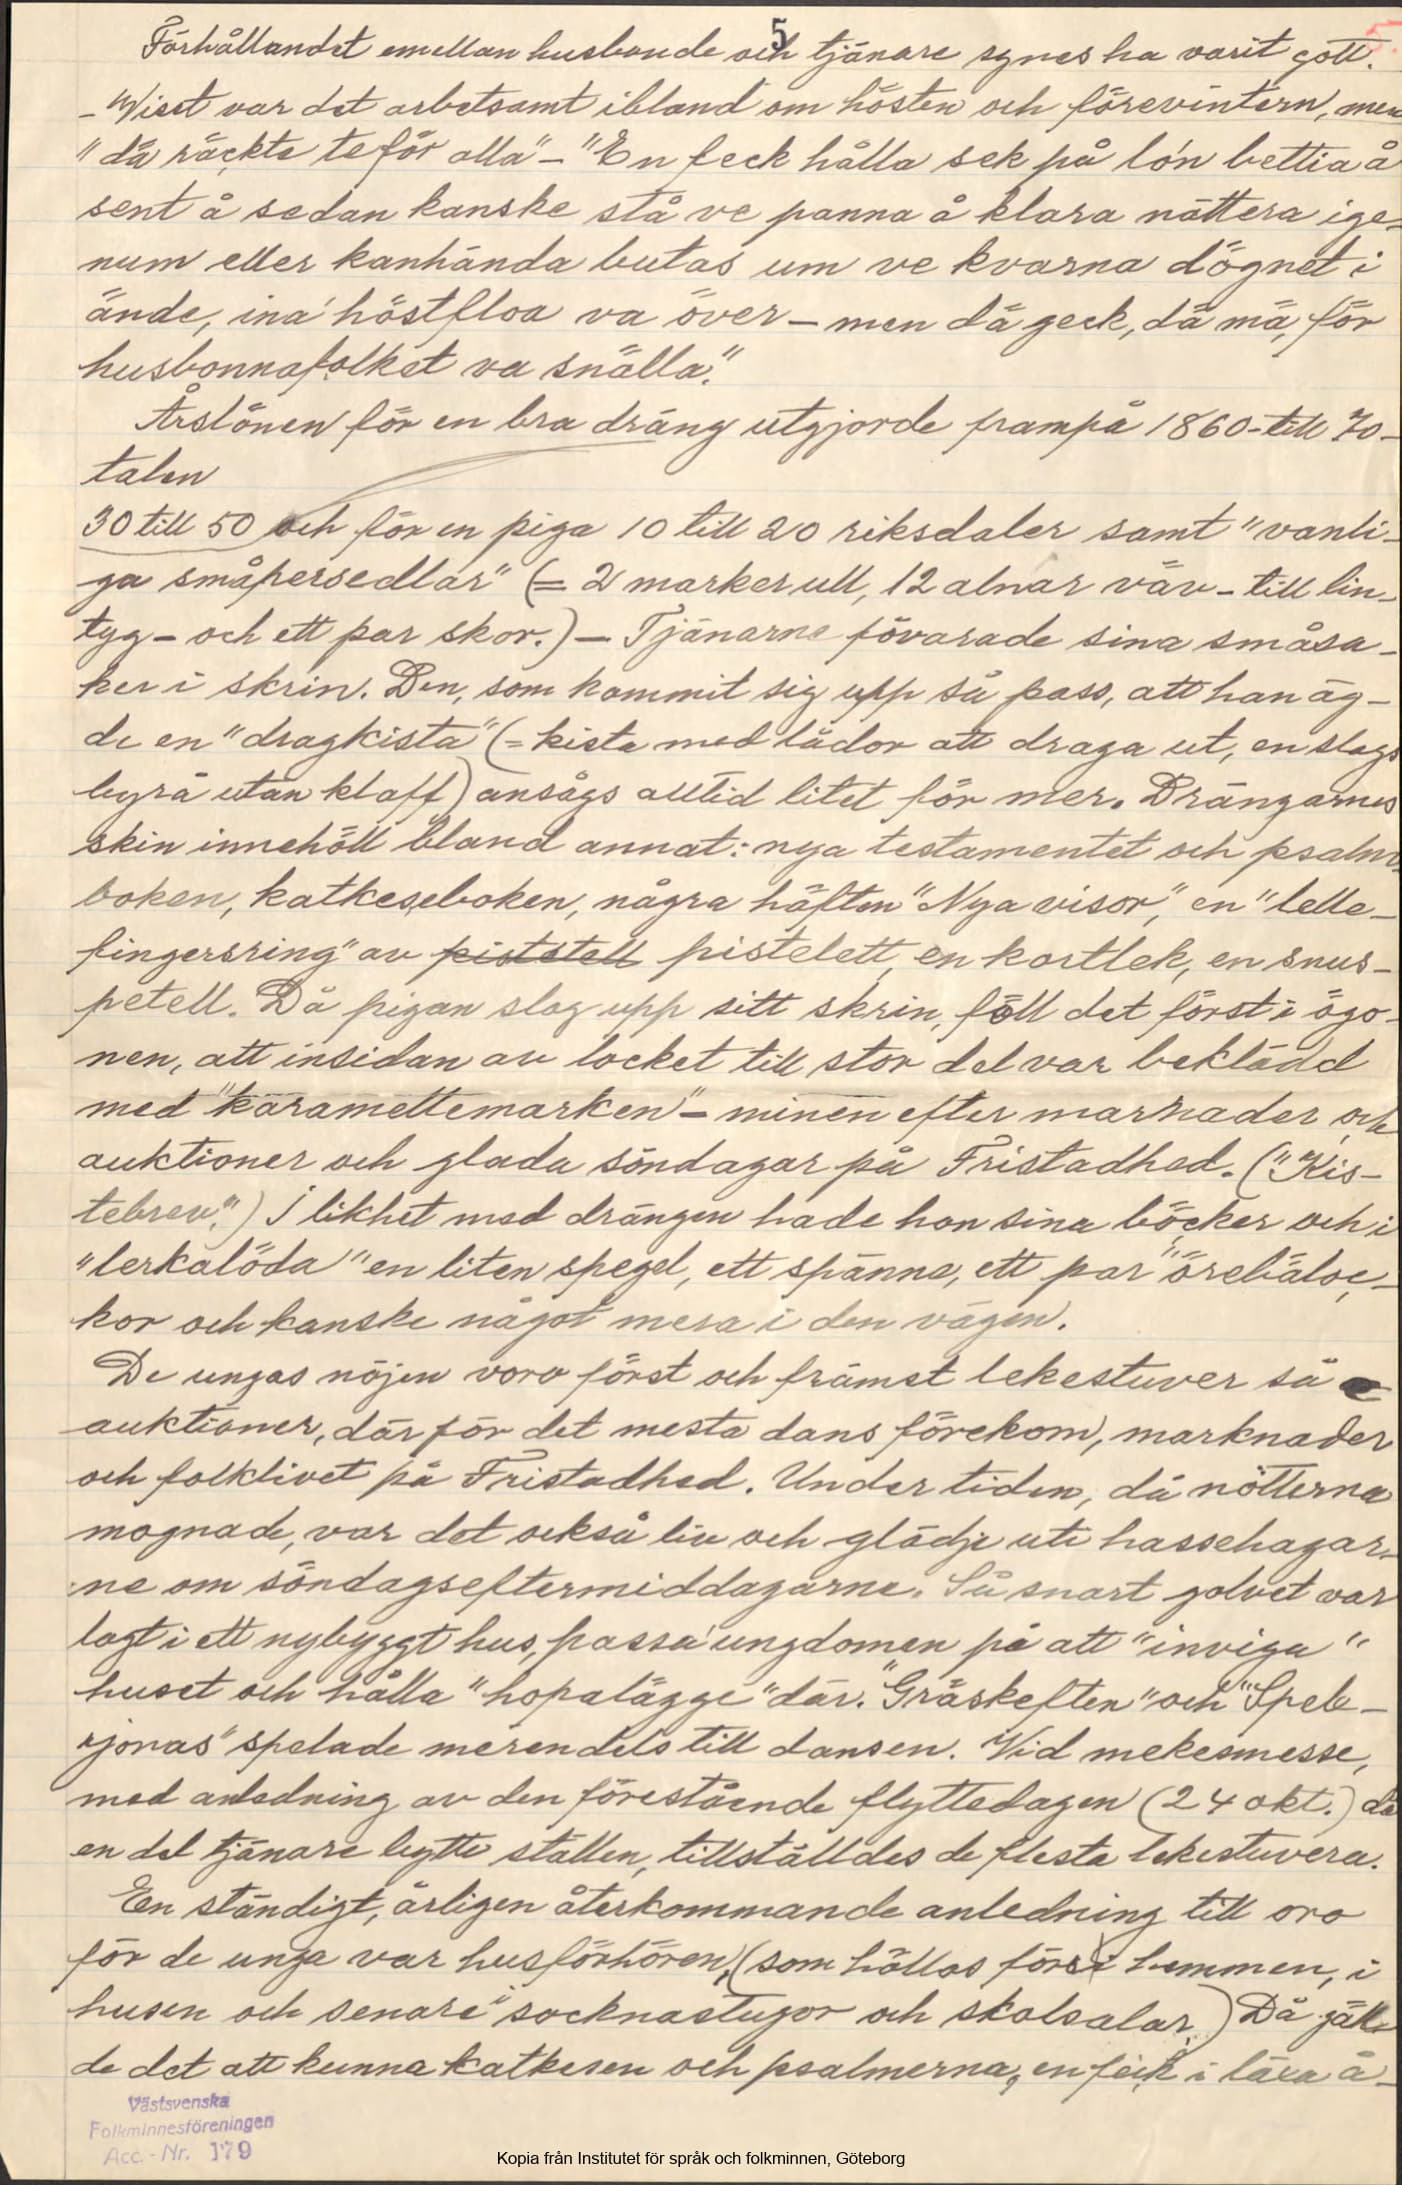 5
5.
Förhållandet emellan husbonde och tjänare synes ha varit gott.
– Wisst var det arbetsamt ibland om hösten och förevintern, men
"dä räckte te för alla" – "En feck hålla sek på lo'n bettia å
sent å sedan kanske stå ve panna å klara nättera ige-
num eller kanhända butas um ve kvarna dögnet i
ände, ina' höstfloa va över – men dä geck, dä mä, för
husbonnafolket va snälla."
Årslönen för en bra dräng utgjorde frampå 1860- till 70-
talen
30 till 50 och för en piga 10 till 20 riksdaler samt "vanli-
ga småpersedlar" (= 2 marker ull, 12 alnar väv – till lin-
tyg – och ett par skor.) – Tjänarne förvarade sina småsa-
ker i skrin. Den, som kommit sig upp så pass, att han äg-
de en "dragkista" (= kista med lådor att draga ut, en slags
byrå utan klaff) ansågs alltid litet för mer. Drängarnes
skin innehöll bland annat: nya testamentet och psalm-
boken, katkeseboken, några häften "Nya visor", en "lelle-
fingersring" av piststell pistelett, en kortlek, en snus-
petell. Då pigan slog upp sitt skrin, föll det först i ögo-
nen, att insidan av locket till stor del var beklädd
med "karamellemarken" – minen efter marknader och
auktioner och glada söndagar på Fristadhed. ("Kis-
tebrev".) I likhet med drängen hade hon sina böcker och i
"lerkalöda" en liten spegel, ett spänne, ett par "örebäloc-
kor och kanske något mera i den vägen.
De ungas nöjen voro först och främst lekestuver så
auktioner, där för det mesta dans förekom, marknader
och folklivet på Fristadhed. Under tiden, då nötterna
mognade, var det också liv och glädje uti hassehagar-
ne om söndagseftermiddagarne. Så snart golvet var
lagt i ett nybyggt hus, passa' ungdomen på att "inviga"
huset och hålla "hopalägge" där. "Gräskeften" och "Spele-
jonas" spelade merendels till dansen. Vid mekesmesse,
med anledning av den förestående flyttedagen (24 okt.) då
en del tjänare bytte ställen, tillställdes de flesta lekestuvera.
En ständigt, årligen återkommande anledning till oro
för de unga var husförhören, (som höllos förr i hemmen, i
husen och senare i socknastugor och skolsalar.) Då gäll-
de det att kunna katkesen och psalmerna, en feck i läxa å-
Västsvenska
Folkminnesföreningen
Acc.-Nr. 179
Kopia från Institutet för språk och folkminnen, Göteborg